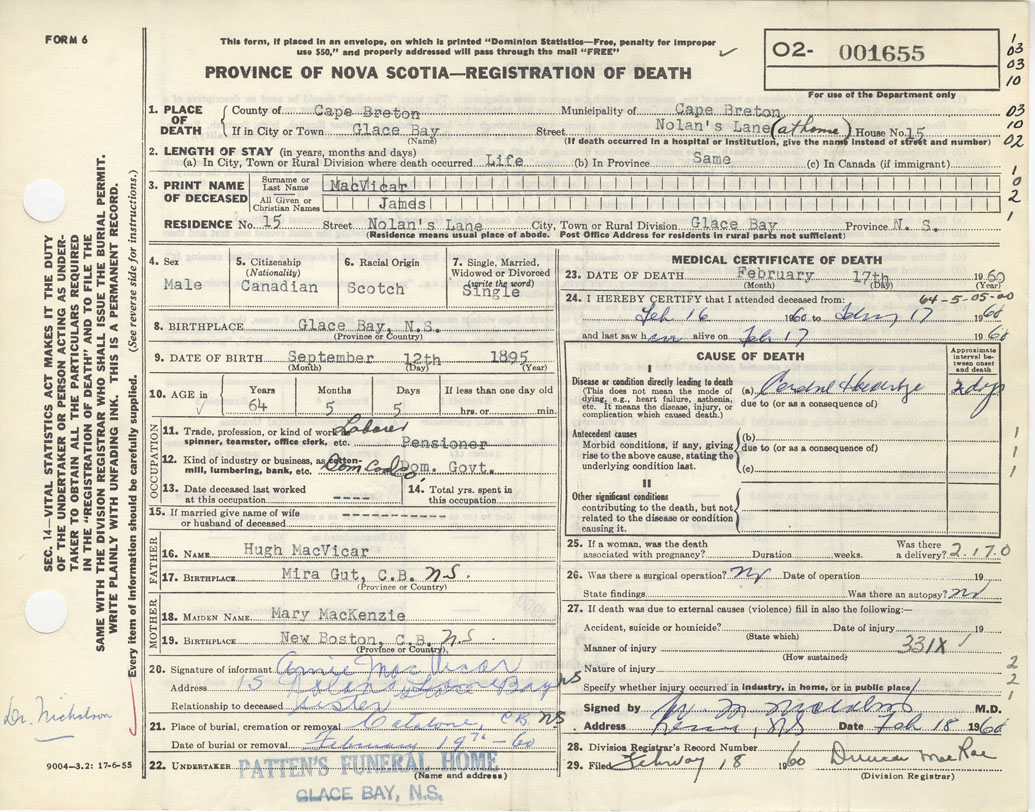 FORM 6
This form, if placed in an envelope, on which is printed "Dominion Statistics—Free, penalty for improper
use $50," and properly addressed will pass through the mail "FREE"
PROVINCE OF NOVA SCOTIA—REGISTRATION OF DEATH
O2- 001655
For use of the Department only
1
03
03
10
03
10
02
1
0
2
1
1
1
1
2
2
1
1. PLACE OF DEATH
County of Cape Breton Municipality of Cape Breton
If in City or Town Glace Bay Street Nolan's Lane (at home) House No. 15
(Name) (If death occurred in a hospital or institution, give the name instead of street and number)
2. LENGTH OF STAY (in years, months and days)
(a) In City, Town or Rural Division where death occurred Life (b) In Province Same (c) In Canada (if immigrant)
3. PRINT NAME OF DECEASED
Surname or Last Name MacVicar
All Given or Christian Names James
RESIDENCE No. 15 Street Nolan's Lane City, Town or Rural Division Glace Bay Province N. S.
(Residence means usual place of abode. Post Office Address for residents in rural parts not sufficient)
4. Sex Male
5. Citizenship (Nationality) Canadian
6. Racial Origin Scotch
7. Single, Married, Widowed or Divorced (write the word) Single
8. BIRTHPLACE Glace Bay, N.S.
(Province or Country)
9. DATE OF BIRTH September 12th 1895
(Month) (Day) (Year)
10. AGE in Years 64 Months 5 Days 5 If less than one day old hrs. or min.
OCCUPATION
11. Trade, profession, or kind of work as spinner, teamster, office clerk, etc. Laborer Pensioner
12. Kind of industry or business, as cotten-mill, lumbering, bank, etc. Dom Coal Co Dom. Govt.
13. Date deceased last worked at this occupation ----
14. Total yrs. spent in this occupation
15. If married give name of wife or husband of deceased --------------
FATHER
16. NAME Hugh MacVicar
17. BIRTHPLACE Mira Gut, C.B. N.S.
(Province or Country)
MOTHER
18. MAIDEN NAME: Mary MacKenzie
19. BIRTHPLACE New Boston, C.B. N.S.
(Province or Country)
20. Signature of informant Annie MacVicar
Address 15 Nolans Lane Glace Bay NS
Relationship to deceased Sister
21. Place of burial, cremation or removal Catalone, C.B. NS
Date of burial or removal February 19th - 60
22. UNDERTAKER PATTEN'S FUNERAL HOME
(Name and address)
GLACE BAY, N.S.
MEDICAL CERTIFICATE OF DEATH
23. DATE OF DEATH February 17th 1960
(Month) (Day) (Year)
24. I HEREBY CERTIFY that I attended deceased from: 64-5-05-00
Feb 16 1960 to Feby 17 1960
and last saw him alive on Feb 17 1960
CAUSE OF DEATH
Approximate interval between onset and death
I
Disease or condition directly leading to death
(This does not mean the mode of dying, e.g., heart failure, asthenia, etc. It means the disease, injury, or complication which caused death.)
(a) 2 dys
due to (or as a consequence of)
Antecedent causes
Morbid conditions, if any, giving rise to the above cause, stating the underlying condition last.
(b)
due to (or as a consequence of)
(c)
II
Other significant conditions
contributing to the death, but not related to the disease or condition causing it.
25. If a woman, was the death associated with pregnancy? Duration weeks. Was there a delivery? 2.17.0
26. Was there a surgical operation? No Date of operation 19
State findings Was there an autopsy? No
27. If death was due to external causes (violence) fill in also the following:—
Accident, suicide or homicide? Date of injury 19
(State which)
Manner of injury 331X
(How sustained)
Nature of injury
Specify whether injury occurred in industry, in home, or in public place
Signed by M.D.
Address NS Date Feb 18 1960
28. Division Registrar's Record Number
29. Filed February 18 1960 Duncan MacRae
(Division Registrar)
SEC. 14—VITAL STATISTICS ACT MAKES IT THE DUTY
OF THE UNDERTAKER OR PERSON ACTING AS UNDER-
TAKER TO OBTAIN ALL THE PARTICULARS REQUIRED
IN THE "REGISTRATION OF DEATH" AND TO FILE THE
SAME WITH THE DIVISION REGISTRAR WHO SHALL ISSUE THE BURIAL PERMIT.
WRITE PLAINLY WITH UNFADING INK. THIS IS A PERMANENT RECORD.
Every item of information should be carefully supplied. (See reverse side for instructions.)
Dr. Nicholson
9004-3.2: 17-6-55